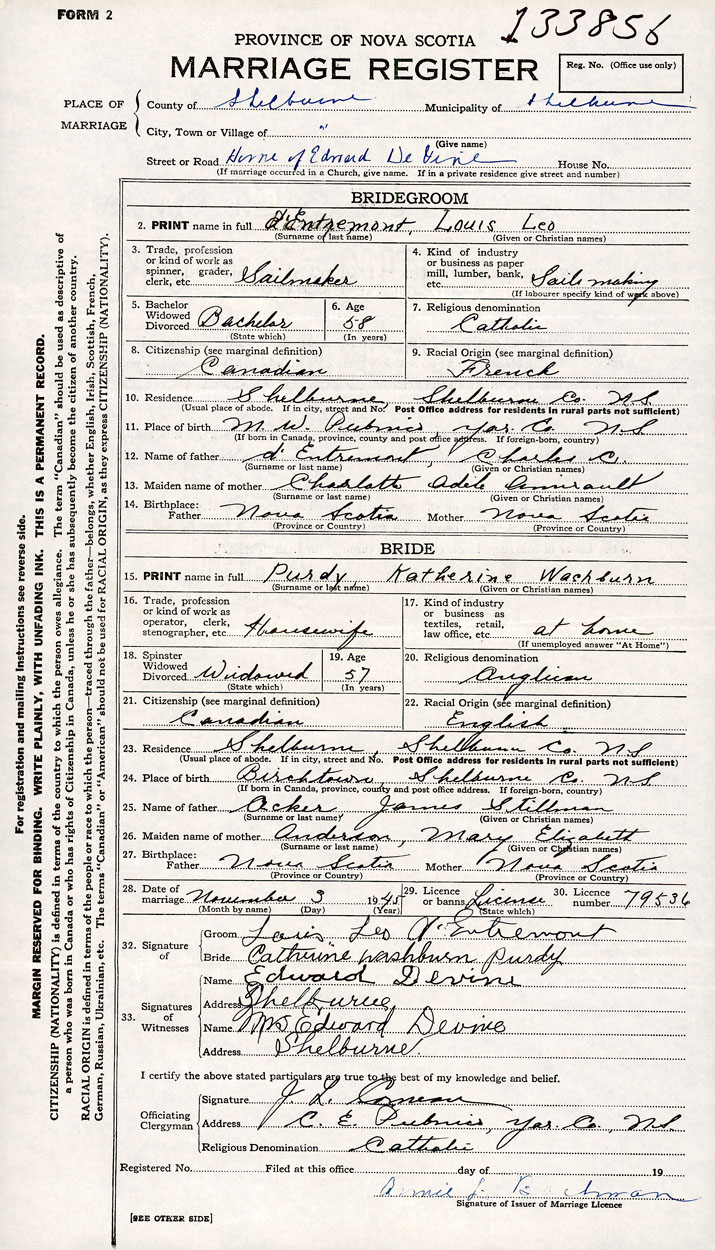 FORM 2
133856
PROVINCE OF NOVA SCOTIA
MARRIAGE REGISTER
Reg. No. (Office use only)
PLACE OF MARRIAGE
County of Shelburne Municipality of Shelburne
City, Town or Village of "
(Give name)
Street or Road Home of Edward DeVine House No.
(If marriage occurred in a Church, give name. If in a private residence give street and number)
BRIDEGROOM
2. PRINT name in full d'Entremont, Louis Leo
(Surname or last name) (Given or Christian names)
3. Trade, profession or kind of work as spinner, grader, clerk, etc. Sailmaker
4. Kind of industry or business as paper mill, lumber, bank, etc. Sails making
(If labourer specify kind of work above)
5. Bachelor Widowed Divorced Bachelor
(State which)
6. Age 58
(In years)
7. Religious denomination Catholic
8. Citizenship (see marginal definition) Canadian
9. Racial Origin (see marginal definition) French
10. Residence Shelburne Shelburne Co. N.S.
(Usual place of abode. If in city, street and No. Post Office address for residents in rural parts not sufficient)
11. Place of birth M. W. Pubnico, Yar. Co. N.S.
(If born in Canada, province, county and post office address. If foreign-born, country)
12. Name of father d'Entremont, Charles C.
(Surname or last name) (Given or Christian names)
13. Maiden name of mother Charlotte Adele Amirault
(Surname or last name) (Given or Christian names)
14. Birthplace: Father Nova Scotia Mother Nova Scotia
(Province or Country) (Province or Country)
BRIDE
15. PRINT name in full Purdy, Katherine Wachburn
(Surname or last name) (Given or Christian names)
16. Trade, profession or kind of work as operator, clerk, stenographer, etc. Housewife
17. Kind of industry or business as textiles, retail, law office, etc. at home
(If unemployed answer "At Home")
18. Spinster Widowed Divorced Widowed
(State which)
19. Age 57
(In years)
20. Religious denomination Anglican
21. Citizenship (see marginal definition) Canadian
22. Racial Origin (see marginal definition) English
23. Residence Shelburne, Shelburne Co. N.S.
(Usual place of abode. If in city, street and No. Post Office address for residents in rural parts not sufficient)
24. Place of birth Birchtown, Shelburne Co. N.S.
(If born in Canada, province, county and post office address. If foreign-born, country)
25. Name of father Acker James Stillman
(Surname or last name) (Given or Christian names)
26. Maiden name of mother Anderson, Mary Elizabeth
(Surname or last name) (Given or Christian names)
27. Birthplace: Father Nova Scotia Mother Nova Scotia
(Province or Country) (Province or Country)
28. Date of marriage November 3 1945
(Month by name) (Day) (Year)
29. Licence or banns License
(State which)
30. Licence number 79536
32. Signature of
Groom Louis Leo d'Entremont
Bride Catherine washburn Purdy
33. Signatures of Witnesses
Name Edward Devine
Address Shelburne
Name Mrs Edward Devine
Address Shelburne.
I certify the above stated particulars are true to the best of my knowledge and belief.
Officiating Clergyman
Signature J. L. Comeau
Address C. E. Pubnico, Yar. Co., N.S.
Religious Denomination Catholic
Registered No. Filed at this office day of 19
Signature of Issuer of Marriage Licence
[SEE OTHER SIDE]
For registration and mailing instructions see reverse side.
MARGIN RESERVED FOR BINDING. WRITE PLAINLY, WITH UNFADING INK. THIS IS A PERMANENT RECORD.
CITIZENSHIP (NATIONALITY) is defined in terms of the country to which the person owes allegiance. The term "Canadian" should be used as descriptive of
a person who was born in Canada or who has rights of Citizenship in Canada, unless he or she has subsequently become the citizen of another country.
RACIAL ORIGIN is defined in terms of the people or race to which the person—traced through the father—belongs, whether English, Irish, Scottish, French,
German, Russian, Ukrainian, etc. The terms "Canadian" or "American" should not be used for RACIAL ORIGIN, as they express CITIZENSHIP (NATIONALITY).